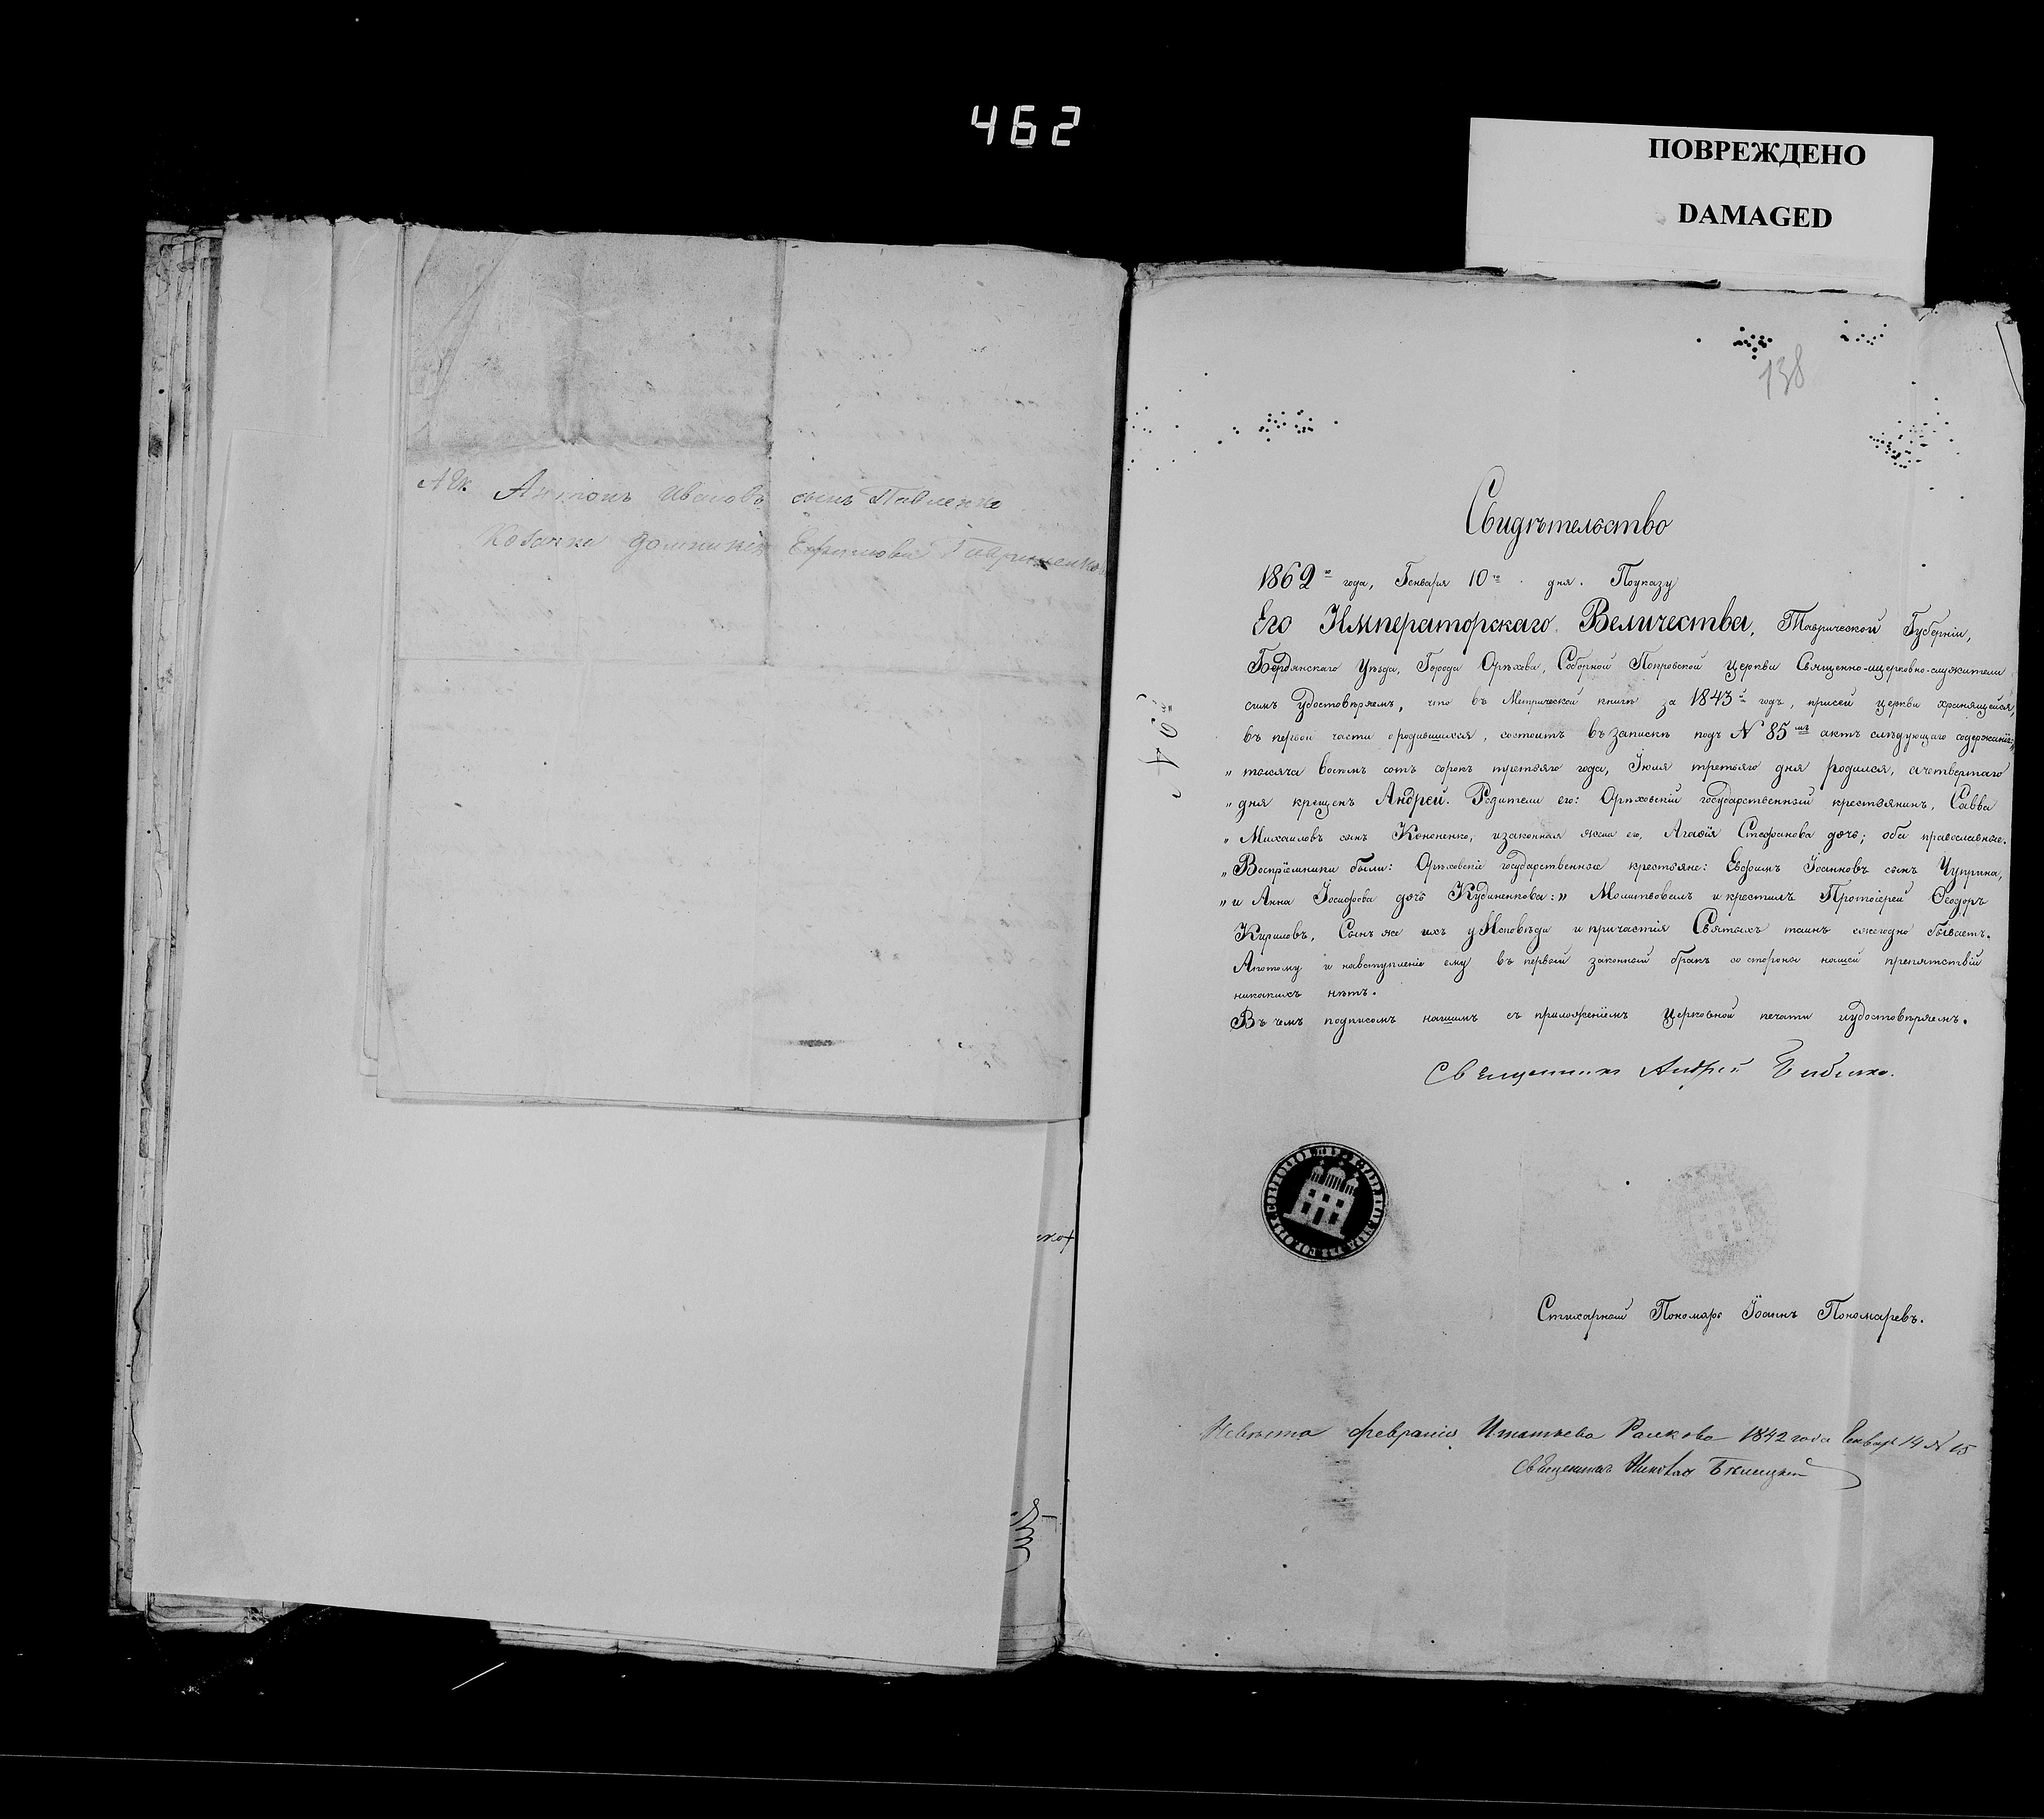 462
ПОВРЕЖДЕНО
DAMAGED
138
Антонъ Ивановъ сынъ Павленко
Козачка Домникія Ефимова
Свидѣтельство
1862го года, Генваря 10го дня. Поуказу
Его Императорскаго Величества, Таврической Губерніи,
Бердянскаго Уѣзда, Города Орѣхова, Соборной Покровской Церкви Священно-ицерковно-служители
симъ удостовѣряемъ, что въ Метрической книгѣ за 1843й годъ, присей церкви хранящейся,
въ первой части ородившихся, состоитъ въ запискѣ подъ № 85мъ актъ слѣдующаго содержанія:
„ тысяча восемъ сотъ сорокъ третьяго года, Іюля третьяго дня родился, ачетвертаго
„ дня крещенъ Андрей. Родители его: Орѣховскій государственный крестьянинъ, Савва
„ Михаиловъ сынъ Кононенко, изаконная жена его, Агафія Стефанова дочь; оба православные.
„ Воспріемники были: Орѣховскіе государственные крестьяне: Евфимъ Іоанновъ сынъ Чуприна,
„ и Анна Іосифова дочь Кудиненкова:„ Молитвовалъ и крестилъ Протоіерей Ѳеодоръ
Кириловъ, Сынъ же ихъ у Исповѣди и причастія Святыхъ таинъ ежегодно бываетъ.
Апотому и навступленіе ему въ первый законный бракъ со стороны нашей препятствій
никакихъ нѣтъ.
Въ чемъ подписомъ нашимъ съ приложеніемъ Церковной печати иудостовѣряемъ.
Священникъ Андрей
Стихарный Пономарь Іоаннъ Пономаревъ.
Невѣста Февранія Игнатьева 1842 года Генваря 14 № 15
Священникъ Николай